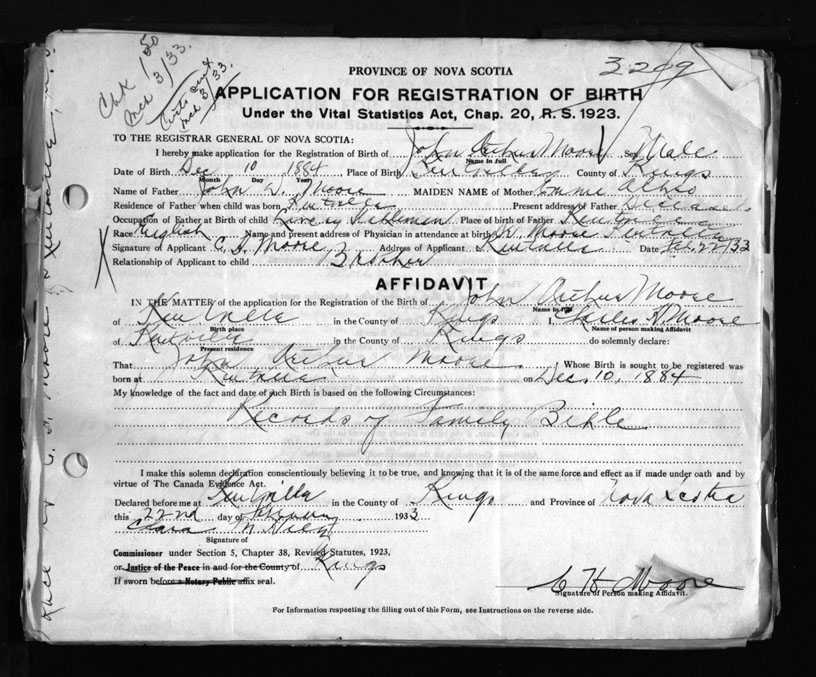 Chk 1.50
Mch 3/33.
Certs sent
Mch 3/33.
3209
PROVINCE OF NOVA SCOTIA
APPLICATION FOR REGISTRATION OF BIRTH
Under the Vital Statistics Act, Chap. 20, R. S. 1923.
TO THE REGISTRAR GENERAL OF NOVA SCOTIA:
I hereby make application for the Registration of Birth of John Arthur Moore Sex Male
Name in full
Date of Birth Dec 10 1884 Place of Birth Kentville County of Kings
Month Day Year
Name of Father John W. Moore MAIDEN NAME of Mother
Residence of Father when child was born Kentville Present address of Father Deceased
Occupation of Father at Birth of child Livery Stableman Place of Birth of Father Kentville
Race English Name and present address of Physician in attendance at birth Dr Moore Kentville
Signature of Applicant C. H. Moore Address of Applicant Kentville Date Feb. 22/33
Relationship of Applicant to child Brother
AFFIDAVIT
IN THE MATTER of the application for the Registration of the Birth of John Arthur Moore
Name in full
of Kentville in the County of Kings I, Charles H Moore
Birth place Name of person making Affidavit
of Kentville in the County of Kings do solemnly declare:
Present residence
That John Arthur Moore Whose Birth is sought to be registered was
born at Kentville on Dec. 10, 1884
My knowledge of the fact and date of such Birth is based on the following Circumstances:
Records of Family Bible
I make this solemn declaration conscientiously believing it to be true, and knowing that it is of the same force and effect as if made under oath and by
virtue of The Canada Evidence Act.
Declared before me at Kentville in the County of Kings and Province of Nova Scotia
this 22nd day of February 1933
Clara M
Signature of
Commissioner under Section 5, Chapter 38, Revised Statutes, 1923,
or Justice of the Peace in and for the County of Kings
If sworn before a Notary Public affix seal.
C H Moore
Signature of Person making Affidavit.
For Information respecting the filling out of this Form, see Instructions on the reverse side.